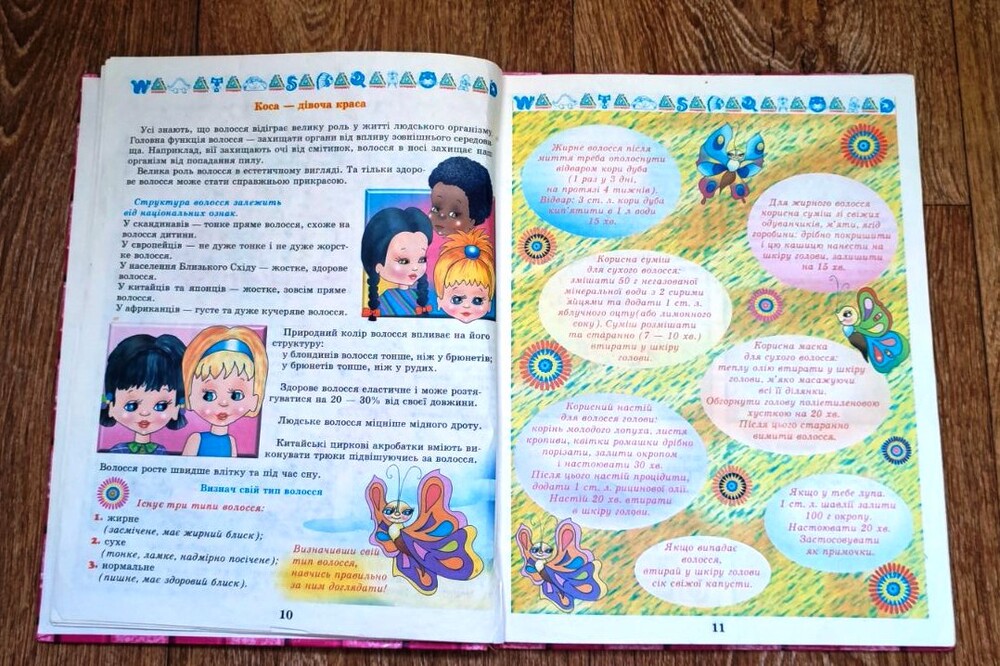 Коса — дівоча краса
Усі знають, що волосся відіграє велику роль у житті людського організму.
Головна функція волосся — захищати органи від впливу зовнішнього середови-
ща. Наприклад, вії захищають очі від смітинок, волосся в носі захищає наш
організм від попадання пилу.
Велика роль волосся в естетичному вигляді. Та тільки здоро-
ве волосся може стати справжньою прикрасою.
Структура волосся залежить
від національних ознак.
У скандинавів — тонке пряме волосся, схоже на
волосся дитини.
У європейців — не дуже тонке і не дуже жорст-
ке волосся.
У населення Близького Сходу — жостке, здорове
волосся.
У китайців та японців — жостке, зовсім пряме
волосся.
У африканців — густе та дуже кучеряве волосся.
Природний колір волосся впливає на його
структуру:
у блондинів волосся тонше, ніж у брюнетів;
у брюнетів тонше, ніж у рудих.
Здорове волосся еластичне і може розтя-
гуватися на 20 — 30% від своєї довжини.
Людське волосся міцніше мідного дроту.
Китайські циркові акробатки вміють ви-
конувати трюки підвішуючись за волосся.
Волосся росте швидше влітку та під час сну.
Визнач свій тип волосся
Існує три типи волосся:
1. жирне
(засмічене, має жирний блиск);
2. сухе
(тонке, ламке, надмірно посічене);
3. нормальне
(пишне, має здоровий блиск).
Визначивши свій
тип волосся,
навчись правильно
за ним доглядати!
10
Жирне волосся після
миття треба ополоснути
відваром кори дуба
(1 раз у 3 дні,
на протязі 4 тижнів).
Відвар: 3 ст. л. кори дуба
кип'ятити в 1 л води
15 хв.
Для жирного волосся
корисна суміш зі свіжих
одуванчиків, м'яти, ягід
горобини: дрібно покришити
і цю кашицю нанести на
шкіру голови, залишити
на 15 хв.
Корисна суміш
для сухого волосся:
змішати 50 г негазованої
мінеральної води з 2 сирими
яйцями та додати 1 ст. л.
яблучного оцту(або лимонного
соку). Суміш розмішати
та старанно (7 — 10 хв.)
втирати у шкіру
голови.
Корисна маска
для сухого волосся:
теплу олію втирати у шкіру
голови, м'яко масажуючи
всі її ділянки.
Обгорнути голову поліетиленовою
хусткою на 20 хв.
Після цього старанно
вимити волосся.
Корисний настій
для волосся голови:
корінь молодого лопуха, листя
кропиви, квітки ромашки дрібно
порізати, залити окропом
і настоювати 30 хв.
Після цього настій процідити,
додати 1 ст. л. рицинової олії.
Настій 20 хв. втирати
в шкіру голови.
Якщо у тебе лупа.
1 ст. л. шавлії залити
100 г окропу.
Настоювати 20 хв.
Застосовувати
як примочки.
Якщо випадає
волосся,
втирай у шкіру голови
сік свіжої капусти.
11